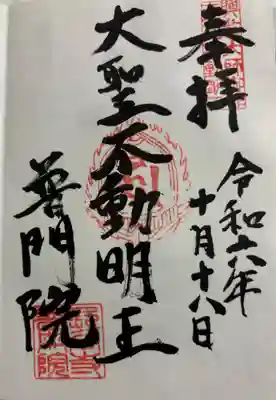 奉拝
令和六年
十月十八日
大聖不動明王
普門院